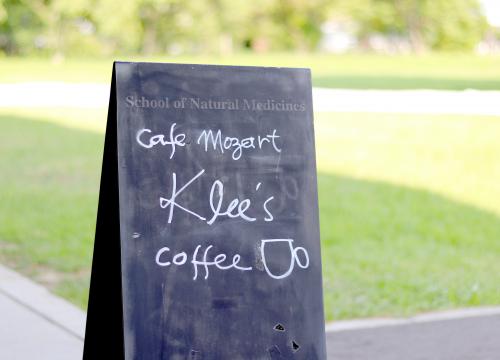 School of Natural Medicines
Cafe Mozart
Klee's
coffee